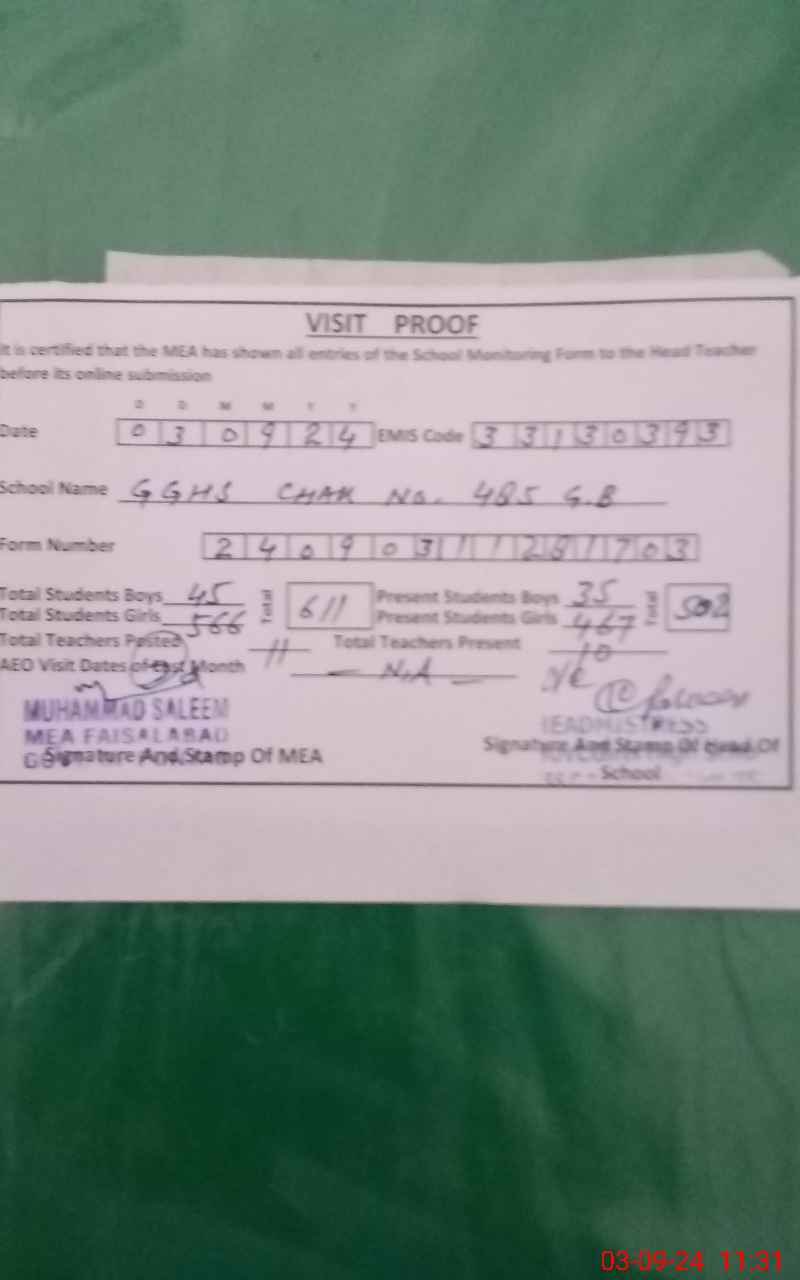 VISIT PROOF
It is certified that the MEA has shown all entries of the School Monitoring Form to the Head Teacher
before its online submission
D D M M Y Y
Date 0 3 0 9 2 4 EMIS Code 3 3 1 3 0 3 9 3
School Name GGHS CHAK No. 485 G.B
Form Number 2 4 0 9 0 3 1 1 2 8 1 7 0 3
Total Students Boys 45 Total 611 Present Students Boys 35 Total 502
Total Students Girls 566 Present Students Girls 467
Total Teachers Posted 11 Total Teachers Present 10
AEO Visit Dates of Last Month N.A
MUHAMMAD SALEEM
MEA FAISALABAD HEADMISTRESS
Signature And Stamp Of MEA Signature And Stamp Of Head Of
School
03-09-24 11:31